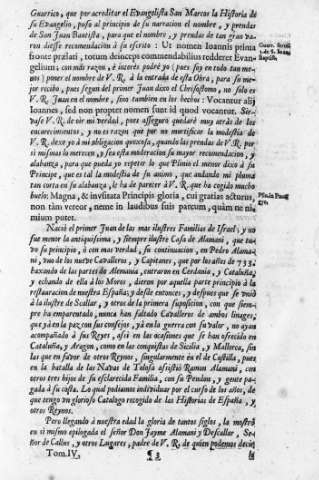 Guerrico, que por acreditar el Evangelista San Marcos la Historia de
su Evangelio, puso al principio de su narracion el nombre, y prendas
de San Juan Bautista, para que el nombre, y prendas de tan gran va-
ron diesse recomendacion à su escrito: Ut nomen Ioannis prima
fronte prælati, totum deinceps commendabilius redderet Evan-
gelium; con mas razon, y interès podrè yo (pues soy en todo tan me-
nos) poner el nombre de V.R. à la entrada de esta Obra, para su me-
jor recibo, pues segun del primer Juan dixo el Chrisostomo, no solo es
V.R. Juan en el nombre, sino tambien en los hechos: Vocantur alij
Ioannes, sed non propter nomen sunt id quod vocantur. Sir-
vase V.R. de oir mi verdad, pues asseguro quedarè muy atràs de los
encarecimientos, y no es razon que por no mortificar la modestia de
V.R. dexe yo à mi obligacion quexosa, quando las prendas de V.R. por
sì mismas lo merecen, y sea esta moderacion su mayor recomendacion, y
alabanza, para que pueda yo repetir lo que Plinio el menor dixo à su
Principe, que es tal la modestia de su animo, que andando mi pluma
tan corta en su alabanza, le ha de parecer à V.R. que ha cogido mucho
buelo: Magna, & inusitata Principis gloria, cui gratias acturus,
non tàm vereor, neme in laudibus suis parcum, quàm ne ni-
mium putet.
Naciò el primer Juan de las mas ilustres Familias de Israel, y no
fue menor la antiquissima, y siempre ilustre Casa de Alamani, que tu-
vo su principio, ò con mas verdad, su continuacion, en Pedro Alama-
ni, uno de los nueve Cavalleros, y Capitanes, que por los años de 733.
baxando de las partes de Alemania, entraron en Cerdania, y Cataluña,
y echando de ella à los Moros, dieron por aquella parte principio à la
restauracion de nuestra España; y desde entonces, y despues que se uniò
à la ilustre de Scallar, y otras de la primera suposicion, con que siem-
pre ha emparentado, nunca han faltado Cavalleros de ambos linages,
que yà en la paz con sus consejos, yà en la guerra con su valor, no ayan
acompañado à sus Reyes, assi en las ocasiones que se han ofrecido en
Cataluña, y Aragon, como en las conquistas de Sicilia, y Mallorca, sin
las que en favor de otros Reynos, singularmente en el de Castilla, pues
en la batalla de las Navas de Tolosa assistiò Ramon Alamani, con
otros tres hijos de su esclarecida Familia, con su Pendon, y gente pa-
gada à su costa. Lo qual podiamos individuar por el curso de los años, de
que tengo un glorioso Catalogo recogido de las Historias de España, y
otros Reynos.
Pero llegando à nuestra edad la gloria de tantos siglos, la mostrò
en sì mismo epilogada el señor Don Jayme Alamani y Descallar, Se-
ñor de Callus, y otros Lugares, padre de V.R. de quien podemos decir,
Tom. IV. ¶3